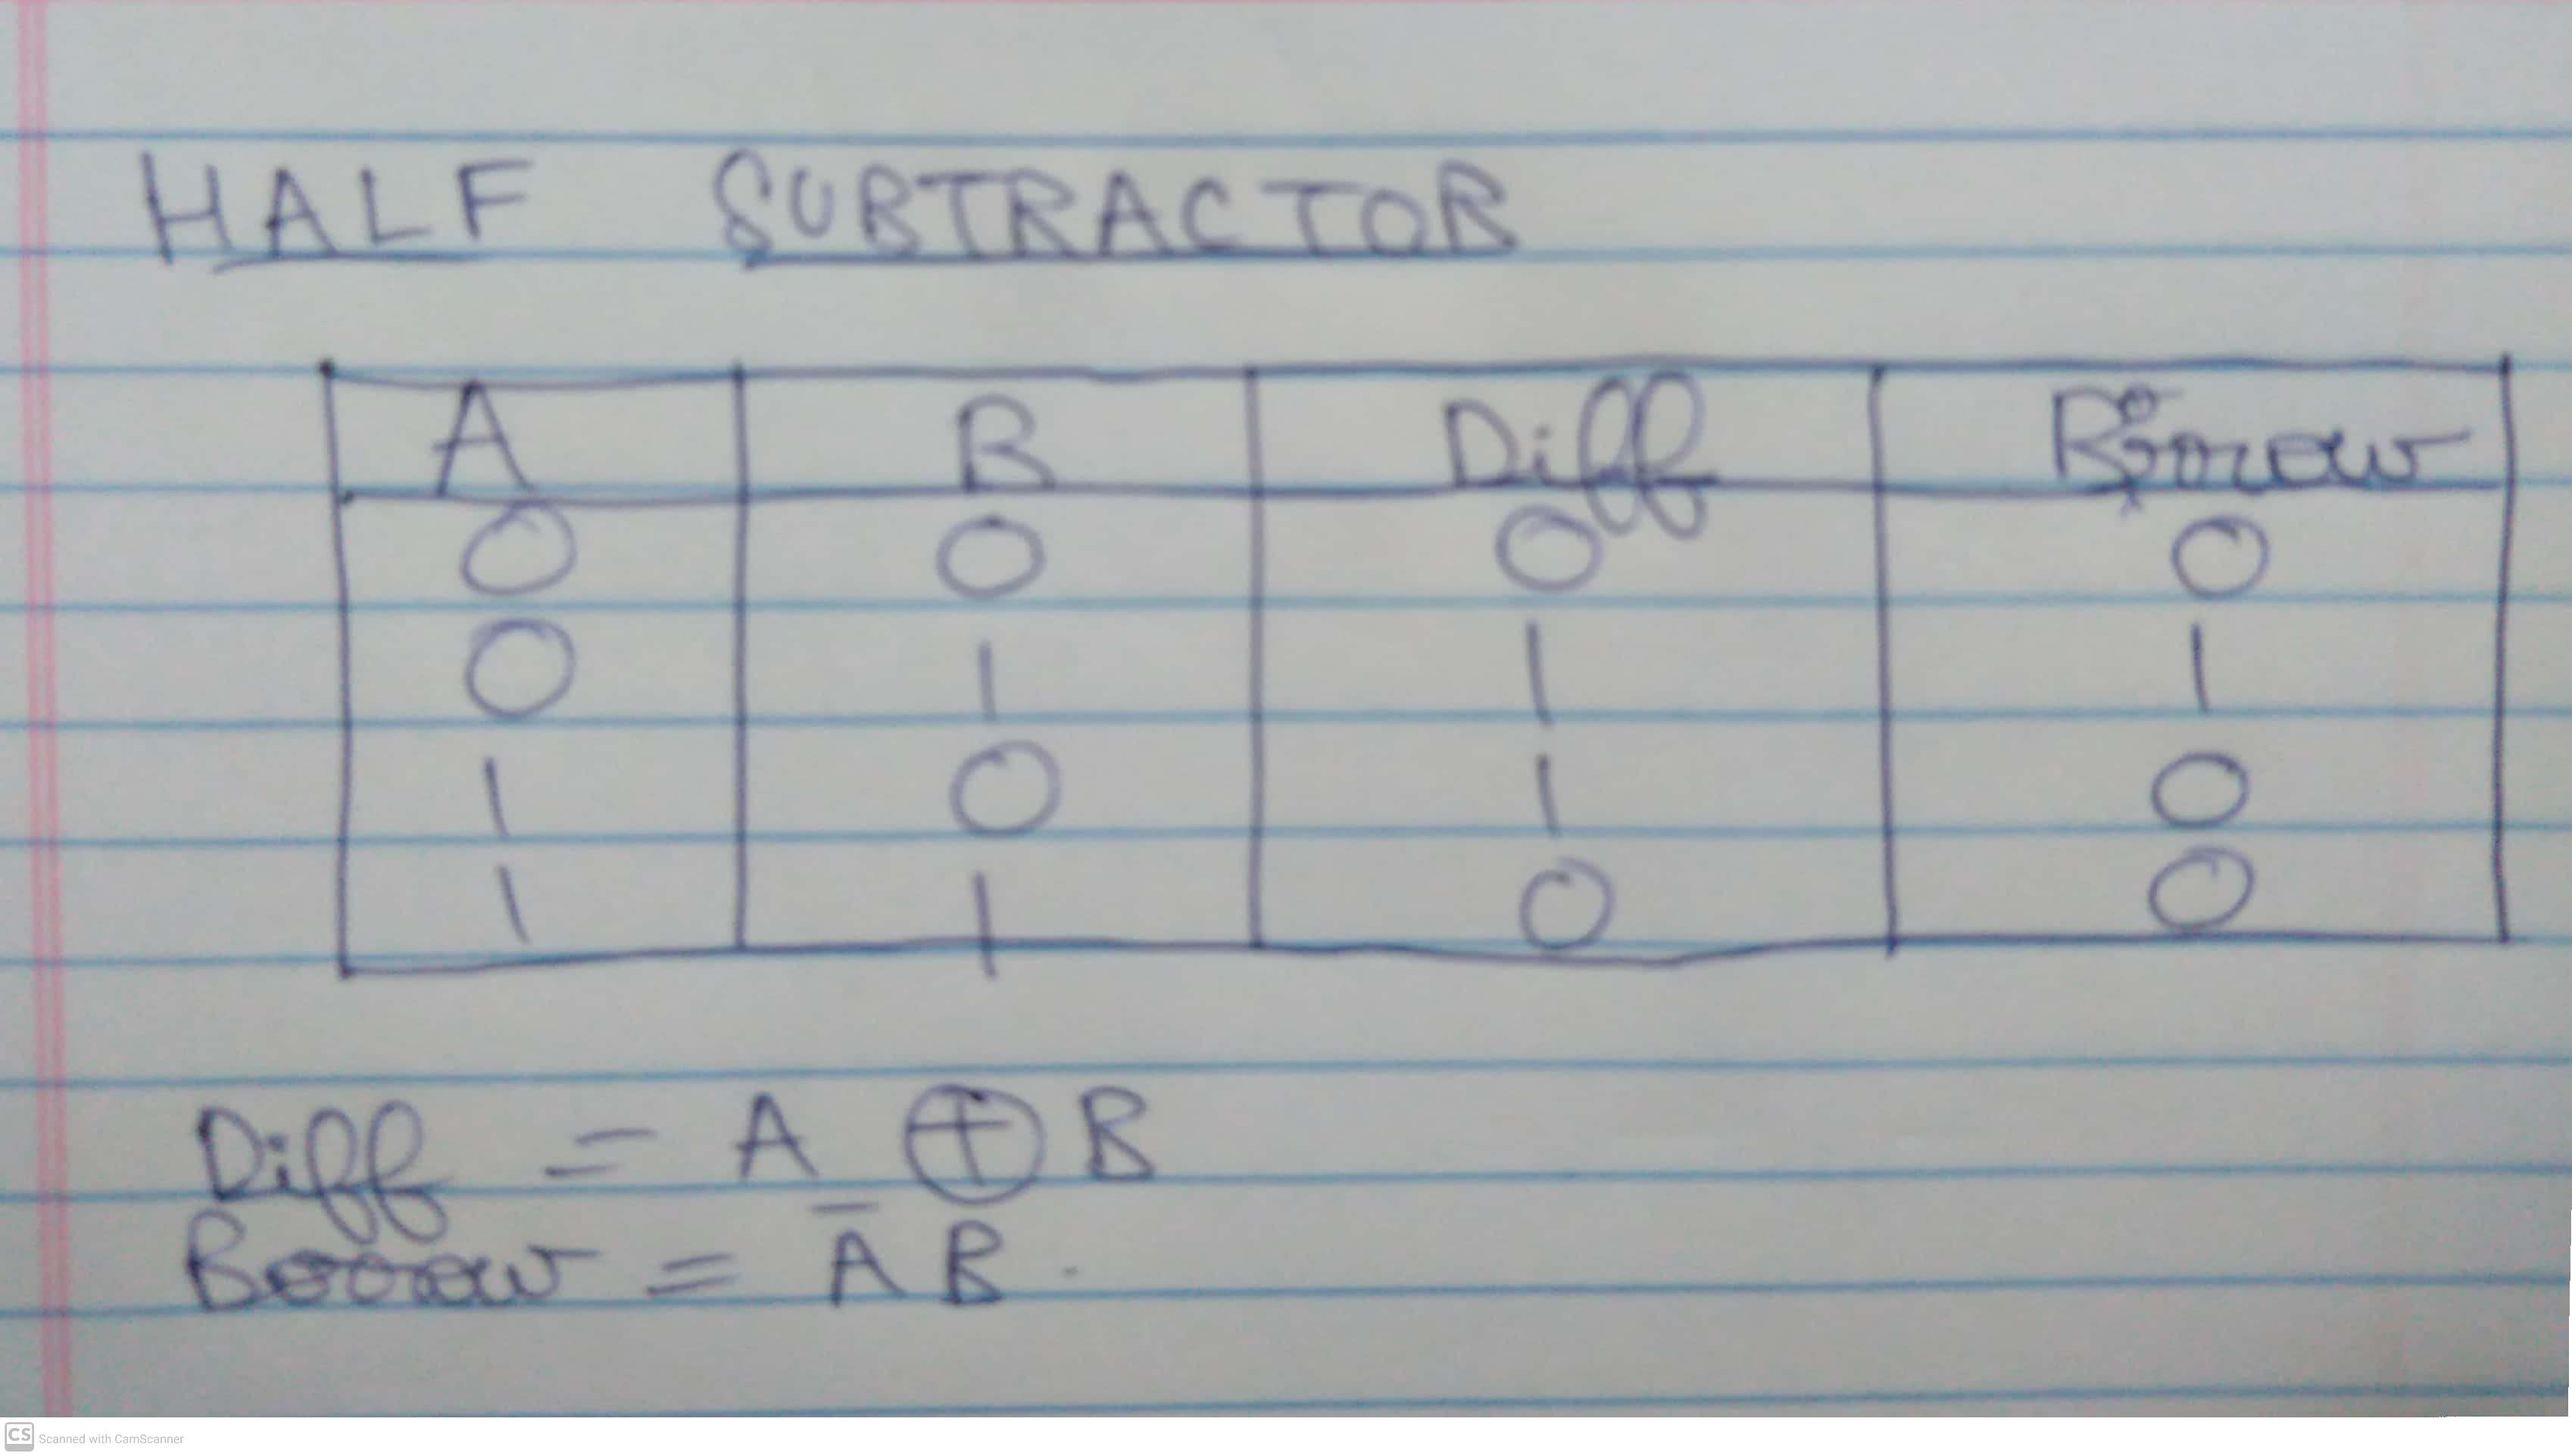 HALF SUBTRACTOR
A B Diff Borrow
0 0 0 0
0 1 1 1
1 0 1 0
1 1 0 0
Diff = A ⊕ B
Borrow = A̅ B.
CS Scanned with CamScanner